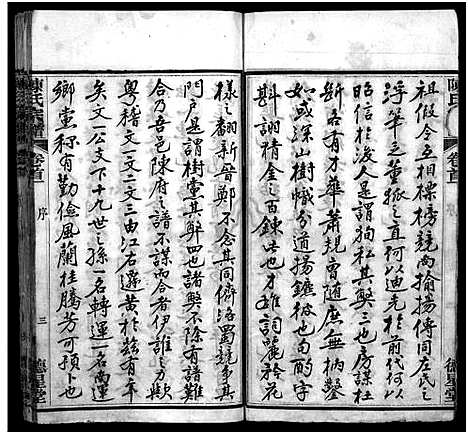 祖假令互相標榜競尚揄揚傳同左氏之
浮華三董狐之直何以迪光於前代何以
昭信於後人是謂狥私其弊三也房謀杜
斷各有才華蕭規曹隨庶無枘鑿
如或深山樹幟分道揚鑣彼也句酌字
斟語必求工此也才雄詞麗矜花
樣之翻新晉鄭不念其同儕洛蜀競爭其
門户是謂樹黨其弊四也諸弊不除有譜難
合乃吾邑陳府不謀而合者伊誰之力歟
粤稽文一文三由江右遷黄於茲有年
矣文一公文下十九世之孫一名轉運一名尚運
鄉黨稱有勤儉風蘭桂騰芳可預卜也
陳氏宗譜
卷首
序
三
德星堂
陳氏
卷首
德星堂